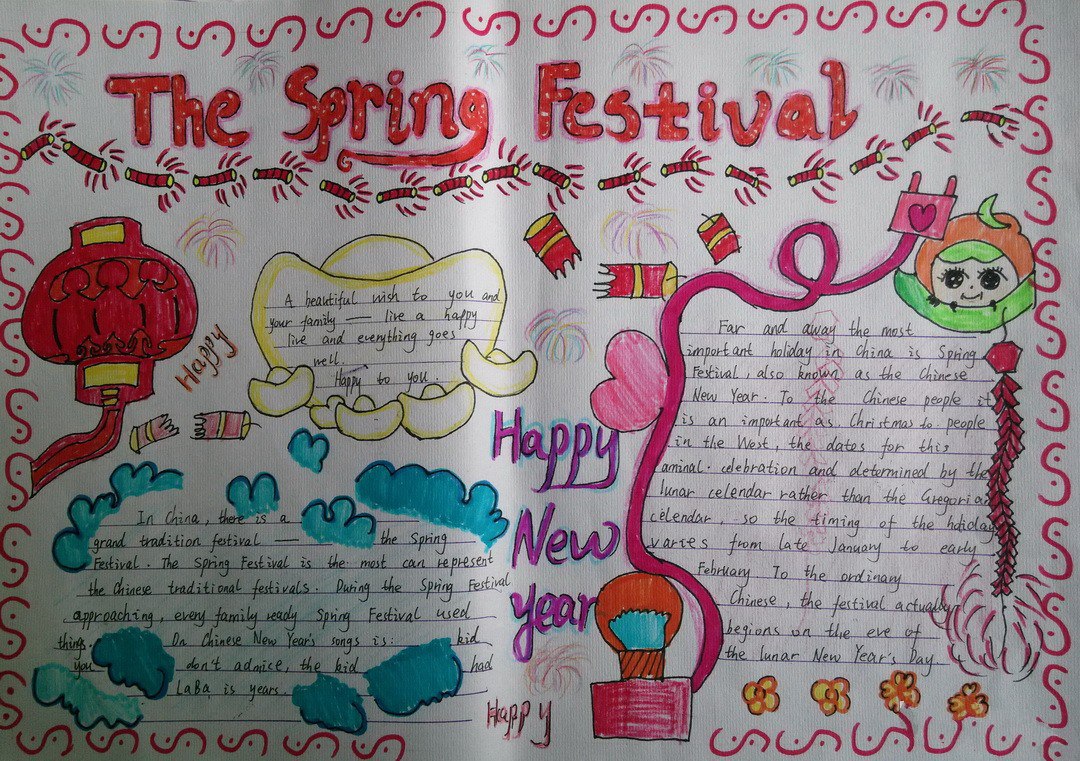 The Spring Festival
A beautiful wish to you and
your family — live a happy
live and everything goes
well.
Happy to you.
Happy
In China, there is a
grand tradition festival — the Spring
Festival. The Spring Festival is the most can represent
the Chinese traditional festivals. During the Spring Festival
approaching, every family ready Spring Festival used
things. On Chinese New Year's songs is: kid
you don't admice, the kid had
LaBa is years.
Happy
New
year
Happy
Far and away the most
important holiday in China is Spring
Festival, also known as the Chinese
New Year. To the Chinese people it
is an important as Christmas to people
in the West, the dates for this
aminal. celebration and determined by the
lunar celendar rather than the Gregoria
celendar, so the timing of the holiday
varies from late January to early
February To the ordinary
Chinese, the festival actually
begions on the eve of
the lunar New Year's Day